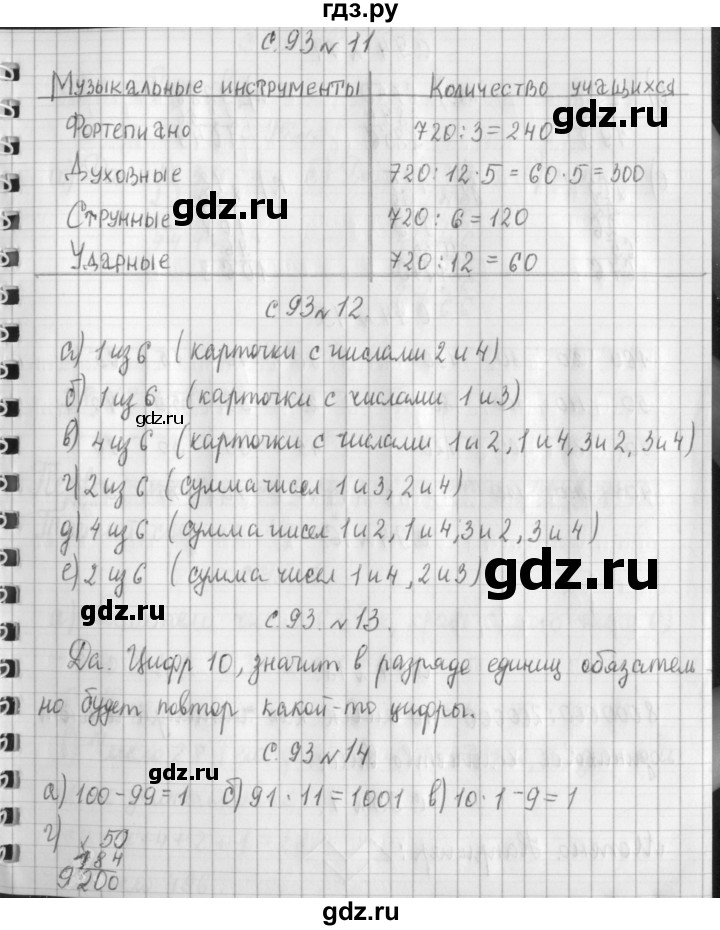 гдз.ру
с. 93 № 11.
Музыкальные инструменты Количество учащихся
Фортепиано 720 : 3 = 240
gdz.ru
Духовные 720 : 12 · 5 = 60 · 5 = 300
gdz.ru
Струнные 720 : 6 = 120
Ударные 720 : 12 = 60
с. 93 № 12.
а) 1 из 6 (карточки с числами 2 и 4)
б) 1 из 6 (карточки с числами 1 и 3)
gdz.ru
в) 4 из 6 (карточки с числами 1 и 2, 1 и 4, 3 и 2, 3 и 4)
г) 2 из 6 (сумма чисел 1 и 3, 2 и 4)
д) 4 из 6 (сумма чисел 1 и 2, 1 и 4, 3 и 2, 3 и 4)
е) 2 из 6 (сумма чисел 1 и 4, 2 и 3)
gdz.ru
gdz.ru
с. 93. № 13.
Да. Цифр 10, значит в разряде единиц обязатель-
но будет повтор какой-то цифры.
с. 93 № 14
gdz.ru
а) 100 - 99 = 1 б) 91 · 11 = 1001 в) 10 · 1 - 9 = 1
г) × 50
184
9200
gdz.ru